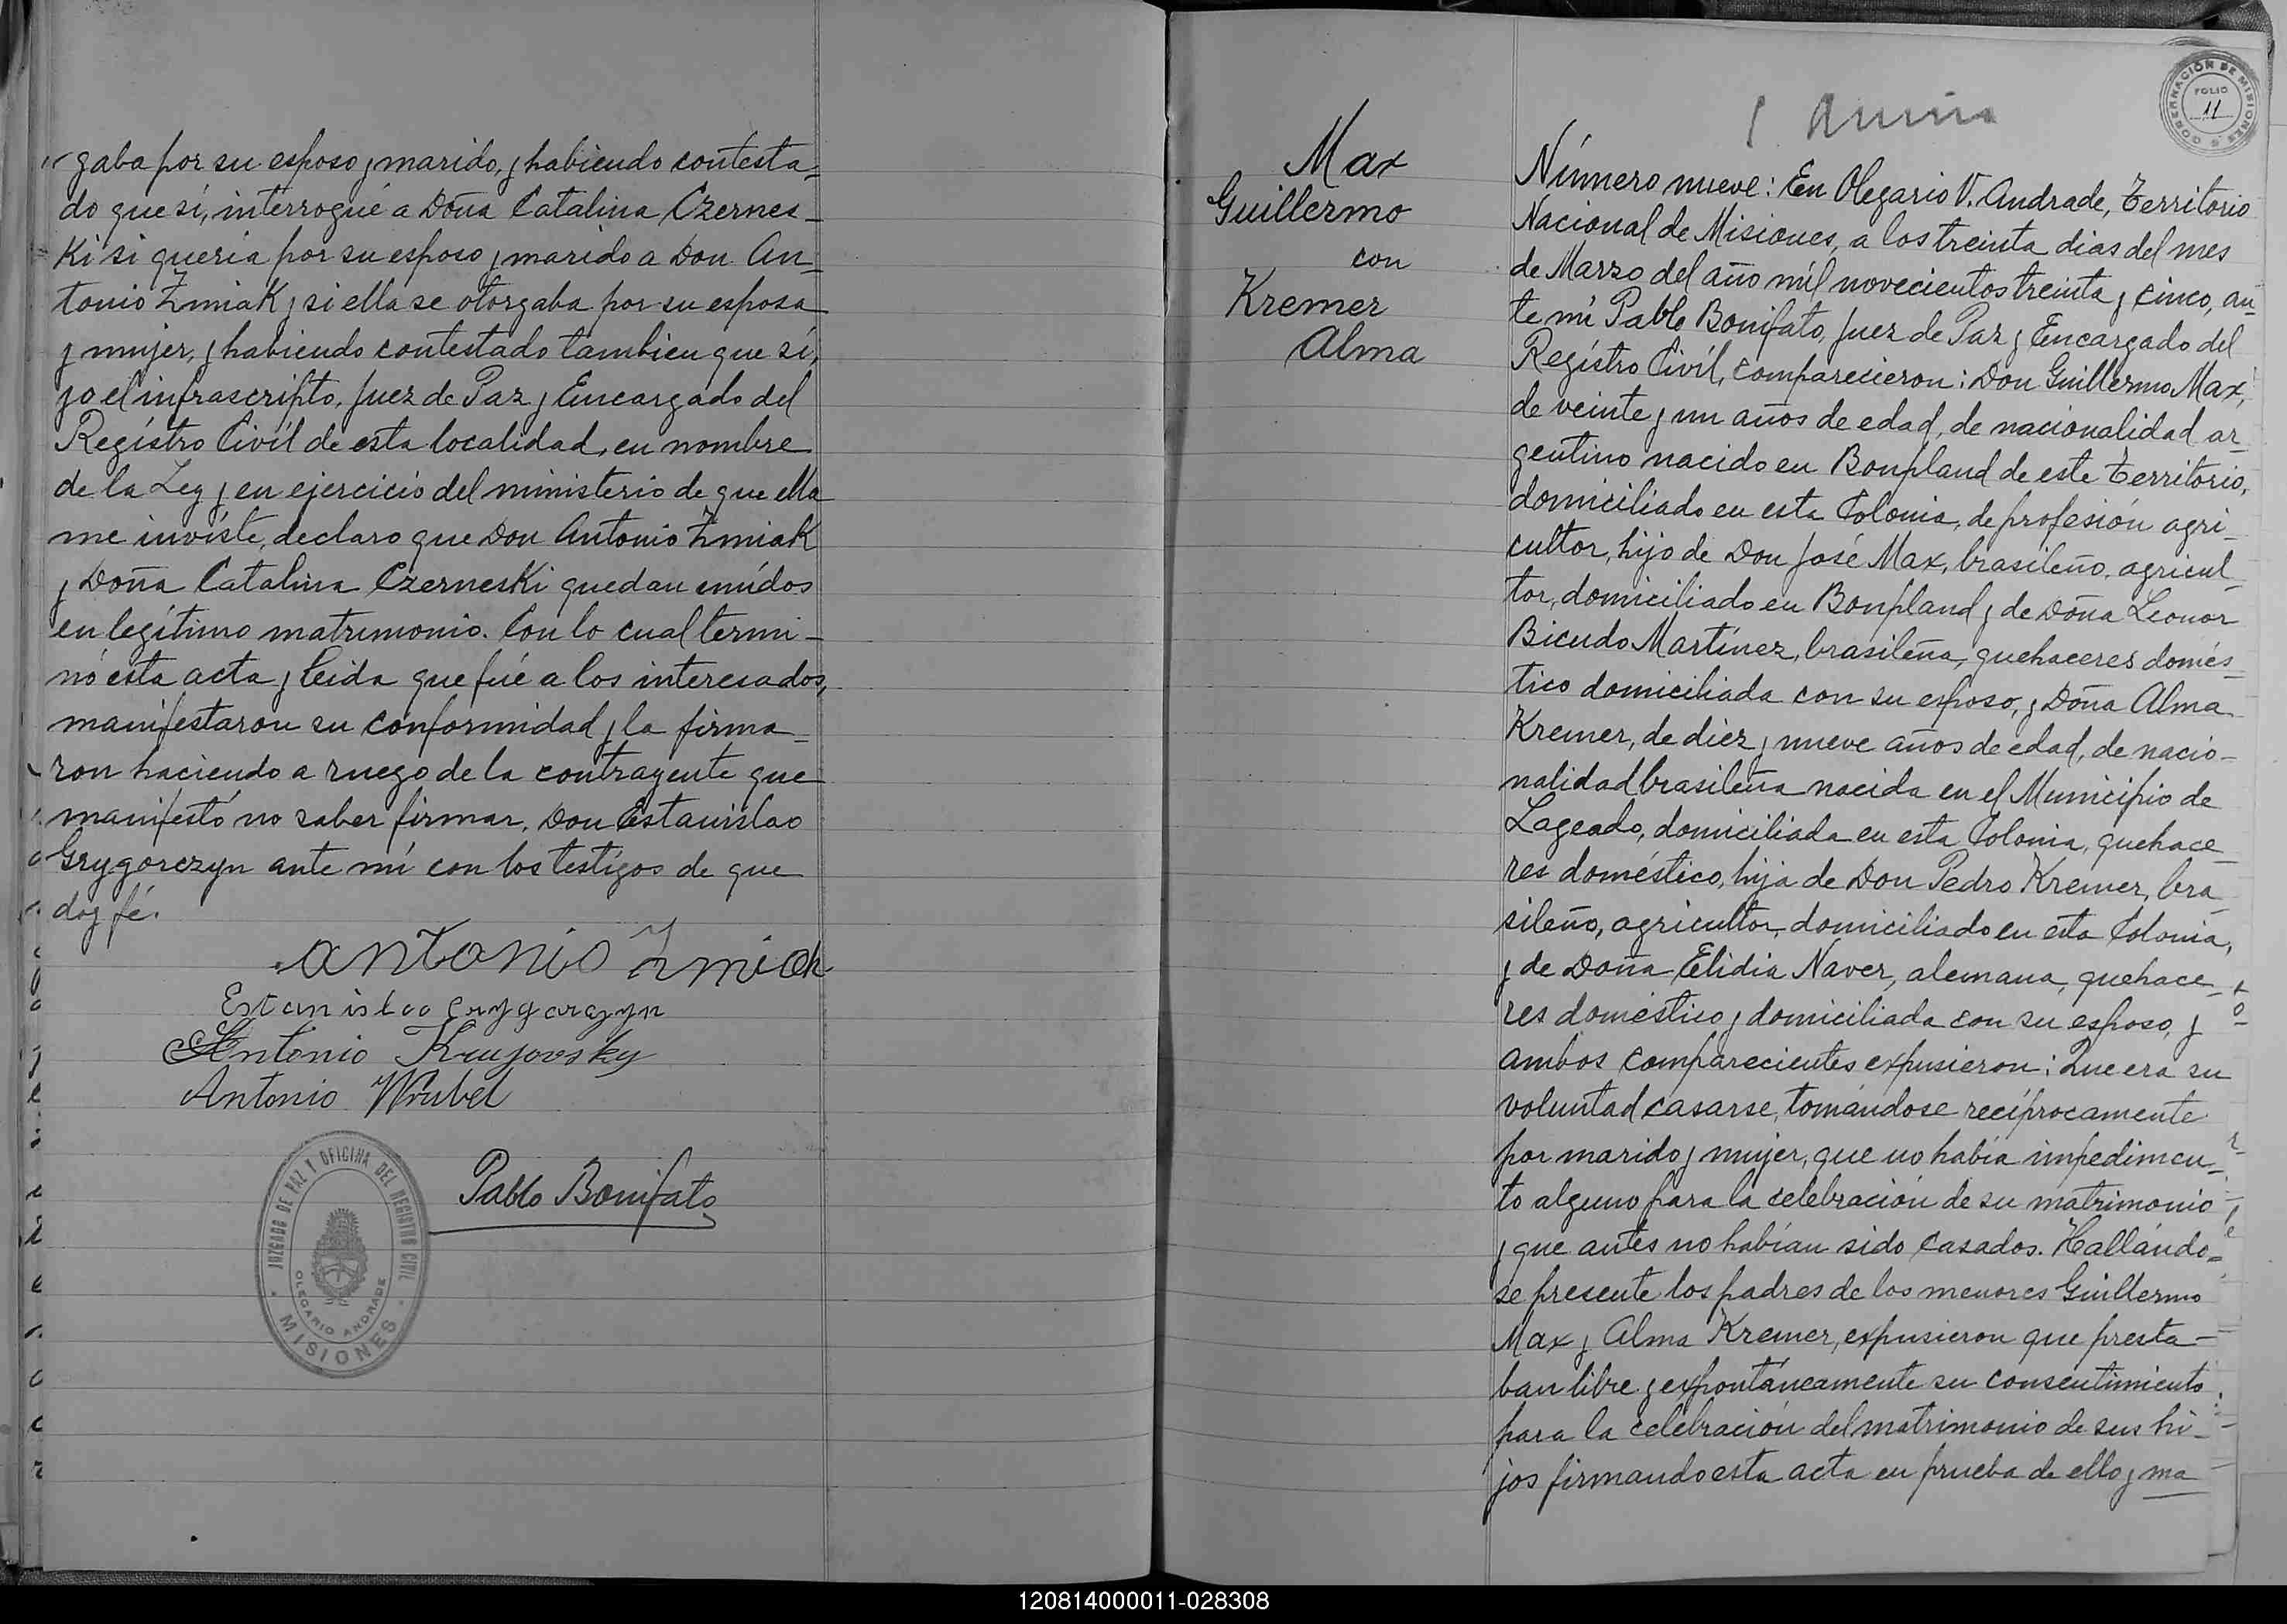 gaba por su esposo y marido, y habiendo contesta=
do que sí, interrogué a Doña Catalina Czernes-
Ki si queria por su esposo y marido a Don An-
tonio ZmiaK y si ella se otorgaba por su esposa
y mujer, y habiendo contestado tambien que sí,
yo el infrascripto, Juez de Paz y Encargado del
Regístro Civíl de esta localidad, en nombre
de la Ley y en ejercicio del ministerio de que ella
me invíste, declaro que Don Antonio ZmiaK
y Doña Catalina CzernesKi quedan unídos
en legítimo matrimonio. Con lo cual termi-
nó esta acta y leida que fué a los interesados,
manifestaron su conformidad y la firma-
ron haciendo a ruego de la contrayente que
manifestó no saber firmar, Don Estanislao
Grygorczyn ante mí con los testígos de que
doy fé.
Antonio Zmiak
Estanislao Grygorczyn
Antonio Krujovsky
Antonio Wrubel
Pablo Bonifato
JUZGADO DE PAZ Y OFICINA DEL REGISTRO CIVIL
OLEGARIO ANDRADE
MISIONES
GOBERNACIÓN DE MISIONES
FOLIO
11
Max
Guillermo
con
Kremer
Alma
Número nueve: En Olegario V. Andrade, Territorio
Nacional de Misiones, a los treinta dias del mes
de Marzo del año mil novecientos treinta y cinco, an=
te mí Pablo Bonifato, Juez de Paz y Encargado del
Regístro Civíl, comparecieron: Don Guillermo Max,
de veinte y un años de edad, de nacionalidad ar-
gentino nacido en Bonpland de este Territorio,
domiciliado en esta Colonia, de profesión agri-
cultor, hijo de Don José Max, brasileño, agricul-
tor, domiciliado en Bonpland y de Doña Leonor
Bicudo Martínez, brasileña, quehaceres domés-
tico domiciliada con su esposo, y Doña Alma
Kremer, de diez y nueve años de edad, de nacio-
nalidad brasileña nacida en el Municipio de
Lageado, domiciliada en esta Colonia, quehace-
res doméstico, hija de Don Pedro Kremer, bra-
sileño, agricultor, domiciliado en esta Colonia,
y de Doña Elidia Naver, alemana, quehace-
res doméstico y domiciliada con su esposo, y
ambos comparecientes expusieron: Que era su
voluntad casarse, tomándose recíprocamente
por marido y mujer, que no había impedimen-
to alguno para la celebración de su matrimonio
y que antes no habían sido casados. Hallándo=
se presente los padres de los menores Guillermo
Max y Alma Kremer, expusieron que presta-
ban libre y expontáneamente su consentimiento
para la celebración del matrimonio de sus hi-
jos firmando esta acta en prueba de ello y ma
120814000011-028308